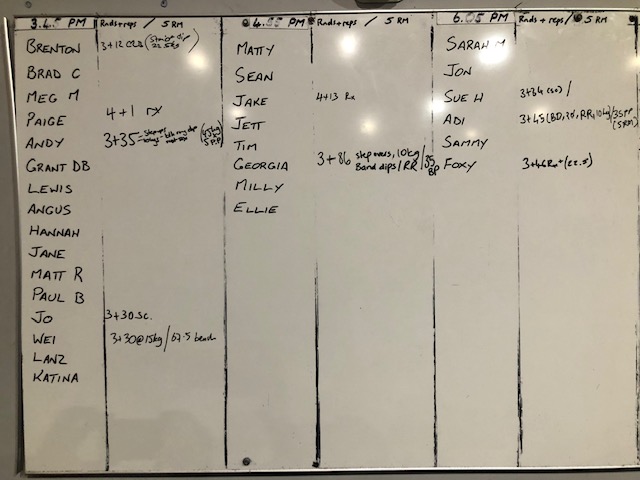 3.45 PM Rnds+reps / 5 RM
BRENTON 3+12 (Strict dip 22.5kg)
BRAD C
MEG M
PAIGE 4+1 rx
ANDY 3+35
GRANT DB
LEWIS
ANGUS
HANNAH
JANE
MATT R
PAUL B
JO 3+30 sc.
WEI 3+30@15kg/67.5 bench
LANZ
KATINA
4.55 PM Rnds+reps / 5 RM
MATTY
SEAN
JAKE 4+13 Rx
JETT
TIM
GEORGIA 3+86 step overs, 10kg
Band dips/RR/35 BP
MILLY
ELLIE
6.05 PM Rnds+reps / 5 RM
SARAH M
JON
SUE H 3+34 (sc) /
ADI 3+45 (BD, RR, 10kg)/35 PP
(5RM)
SAMMY
FOXY 3+46 Rx+(22.5)